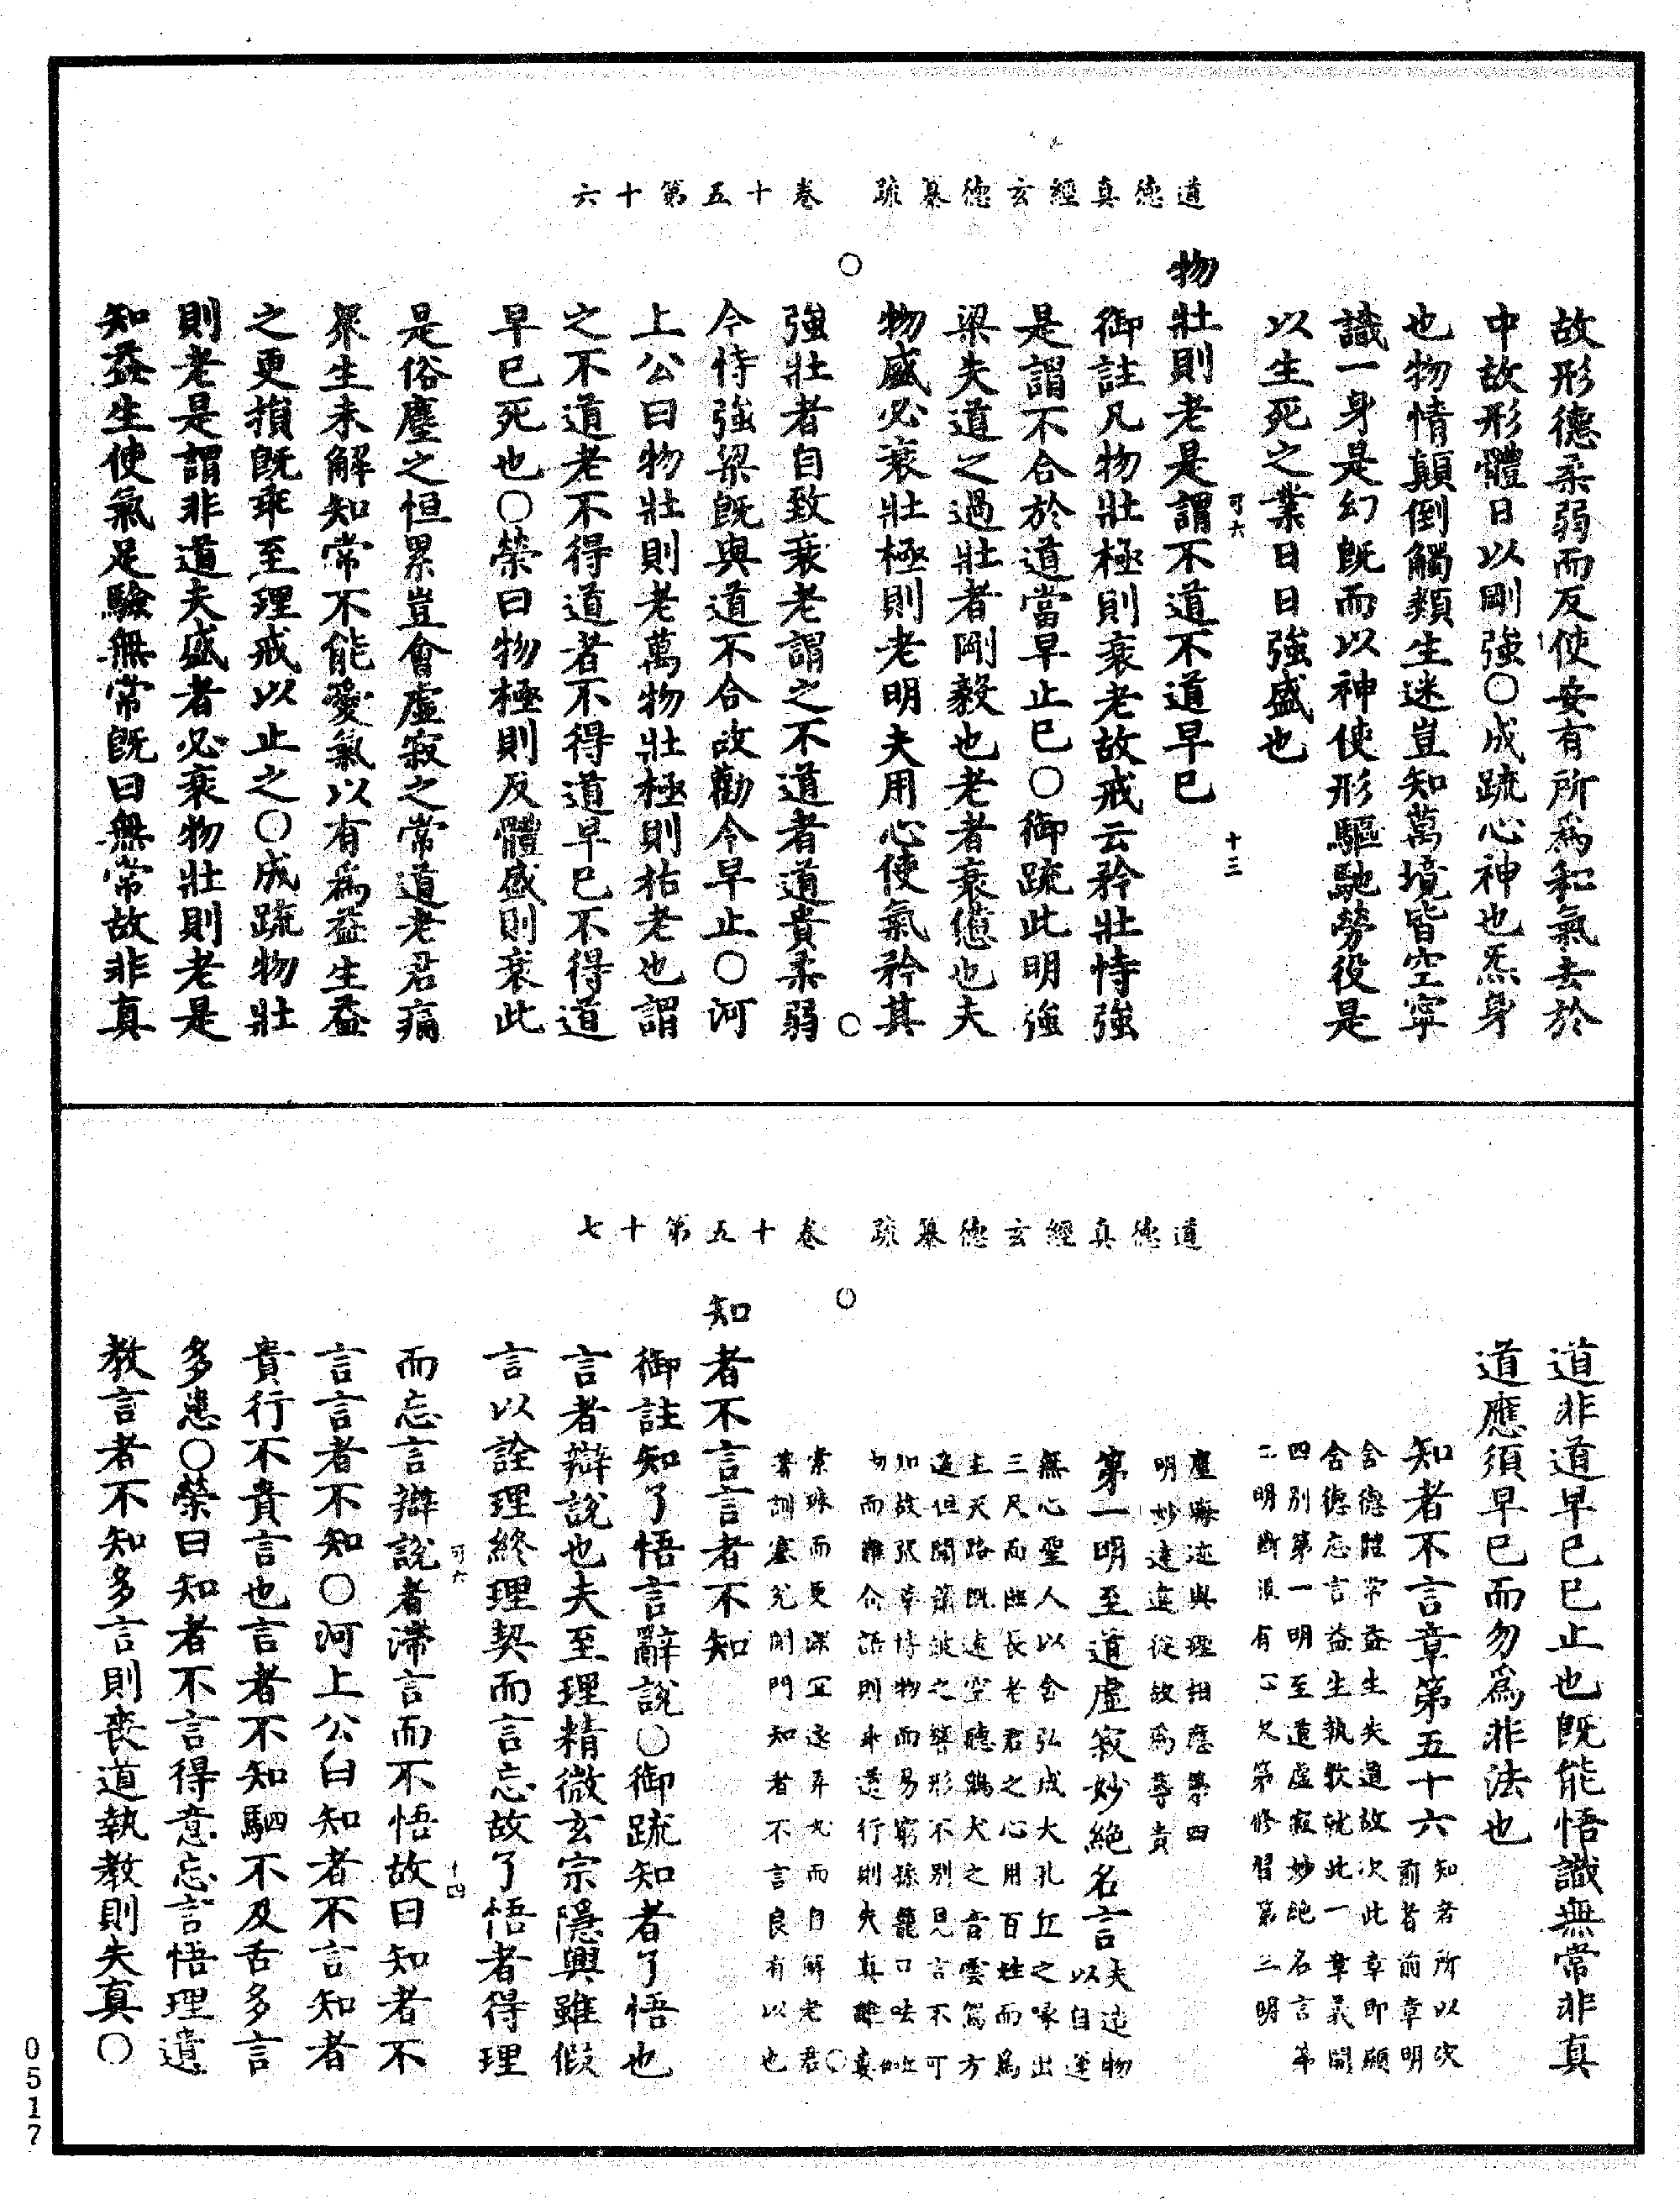 道德真經玄德纂疏　卷十五第十六
故形德柔弱而反使妄有所為和氣去於
中故形體日以剛強○成疏心神也炁身
也物情顛倒觸類生迷豈知萬境皆空寧
識一身是幻既而以神使形驅馳勞役是
以生死之業日日強盛也
可六　十三
物壯則老是謂不道不道早已
御註凡物壯極則衰老故戒云矜壯恃強
是謂不合於道當早止已○御疏此明強
梁失道之過壯者剛毅也老者衰憊也夫
物盛必衰壯極則老明夫用心使氣矜其
強壯者自致衰老謂之不道者道貴柔弱
今恃強梁既與道不合故勸令早止○河
上公曰物壯則老萬物壯極則枯老也謂
之不道老不得道者不得道早已不得道
早已死也○榮曰物極則反體盛則衰此
是俗塵之恒累豈會虛寂之常道老君痛
衆生未解知常不能愛氣以有為益生益
之更損既乖至理戒以止之○成疏物壯
則老是謂非道夫盛者必衰物壯則老是
知益生使氣足驗無常既曰無常故非真
道德真經玄德纂疏　卷十五第十七
道非道早已已止也既能悟識無常非真
道應須早已而勿為非法也
知者不言章第五十六
知者所以次
前者前章明
含德體常益生失道故次此章即顯
含德忘言益生執教就此一章義開
四別第一明至道虛寂妙絕名言第
二明斷漠有心久第修習第三明
塵晦迹與理相應第四
明妙達違從故為尊貴
第一明至道虛寂妙絕名言
夫造物
以自運
無心聖人以含弘成大孔丘之喙出
三尺而無長老君之心用百姓而為
主天路既遠空聽鷄犬之音雲駕方
遊但聞蕭鼓之響形不別兒言不可
知故張華博物而易窮孫龍口呿
內而難合語則乖道行則失真難
索珠而更深宜遼弄丸而自解老君
著訓塞兌閉門知者不言良有以也
知者不言言者不知
御註知了悟言辭說○御疏知者了悟也
言者辯說也夫至理精微玄宗隱奧雖假
言以詮理終理契而言忘故了悟者得理
而忘言辯說者滯言而不悟故曰知者不
可六　十四
言言者不知○河上公曰知者不言知者
貴行不貴言也言者不知駟不及舌多言
多患○榮曰知者不言得意忘言悟理遺
教言者不知多言則喪道執教則失真○
0517